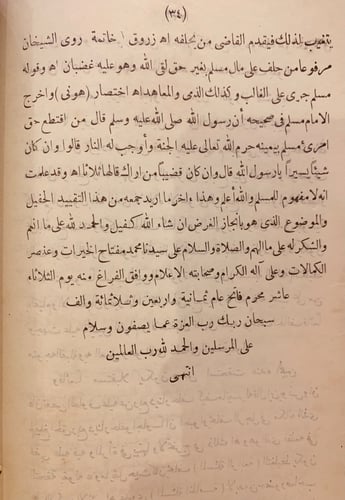 (٣٤٠)
يتغيب لذلك فيقدم القاضى من يحلفه اه زروق اه خاتمة روى الشيخان
مرفوعا من حلف على مال مسلم بغير حق لقى الله وهو عليه غضبان اه وقوله
مسلم جرى على الغالب وكذلك الذمى والمعاهد اه اختصار (هونى) واخرج
الامام مسلم فى صحيحه أن رسول الله صلى الله عليه وسلم قال من اقتطع حق
امرئ مسلم بيمينه حرم الله تعالى عليه الجنة وأوجب له النار قالوا وان كان
شيئا يسيرا يارسول الله قال وان كان قضيبا من اراك قالها ثلاثا اه وقد علمت
انه لا مفهوم للمسلم والله أعلم وهذا اخر ما اريد جمعه من هذا التقييد الحفيل
والموضوع الذى هو بانجاز الغرض ان شاء الله كفيل والحمد لله على ما انعم
والشكر له على ما الهم والصلاة والسلام على سيدنا محمد مفتاح الخيرات وعنصر
الكمالات وعلى آله الكرام وصحابته الاعلام ووافق الفراغ منه يوم الثلاثاء
عاشر محرم فاتح عام ثمانية واربعين وثلاثمائة والف
سبحان ربك رب العزة عما يصفون وسلام
على المرسلين والحمد لله رب العالمين
انتهى